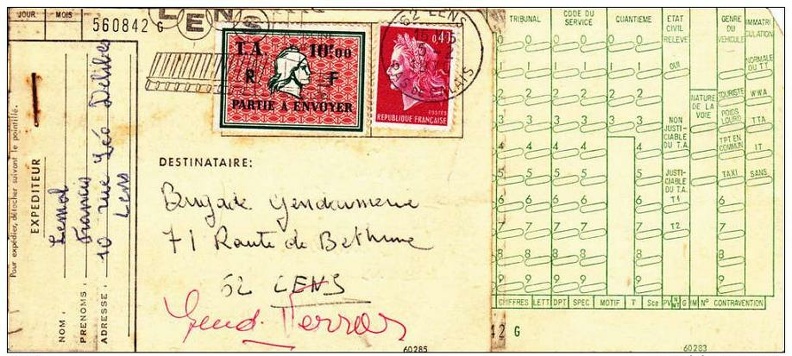 JOUR MOIS
560842 G
LENS
62 LENS
PAS DE CALAIS
T.A. 10F00
R F
PARTIE A ENVOYER
0,40
POSTES
REPUBLIQUE FRANÇAISE
Pour expédier, détacher suivant le pointillé.
EXPÉDITEUR
NOM : Lemol
PRÉNOMS : Francis
ADRESSE : 10 rue Léo Delibes
Lens
DESTINATAIRE:
Brigade Gendarmerie
71 Route de Bethune
62 LENS
60285
TRIBUNAL
CODE DU SERVICE
QUANTIÈME
ETAT CIVIL RELEVÉ
GENRE DU VEHICULE
IMMATRICULATION
0 0 0 0 0 0
1 1 1 1 1 1 OUI NORMALE DU TT
2 2 2 2 2 2 TOURISTE WWA
3 3 3 3 3 3 NON JUSTICIABLE DU T.A. NATURE DE LA VOIE POIDS LOURD TTA
4 4 4 4 TPT. EN COMMUN IT
5 5 5 5 JUSTICIABLE DU T.A. TAXI SANS
6 6 6 6 T1 6
7 7 7 7 T2 7
8 8 8 8 8
9 9 9 9 9
CHIFFRES LETT DPT SPEC MOTIF T Sce PV G IM N° CONTRAVENTION
42 G
60283